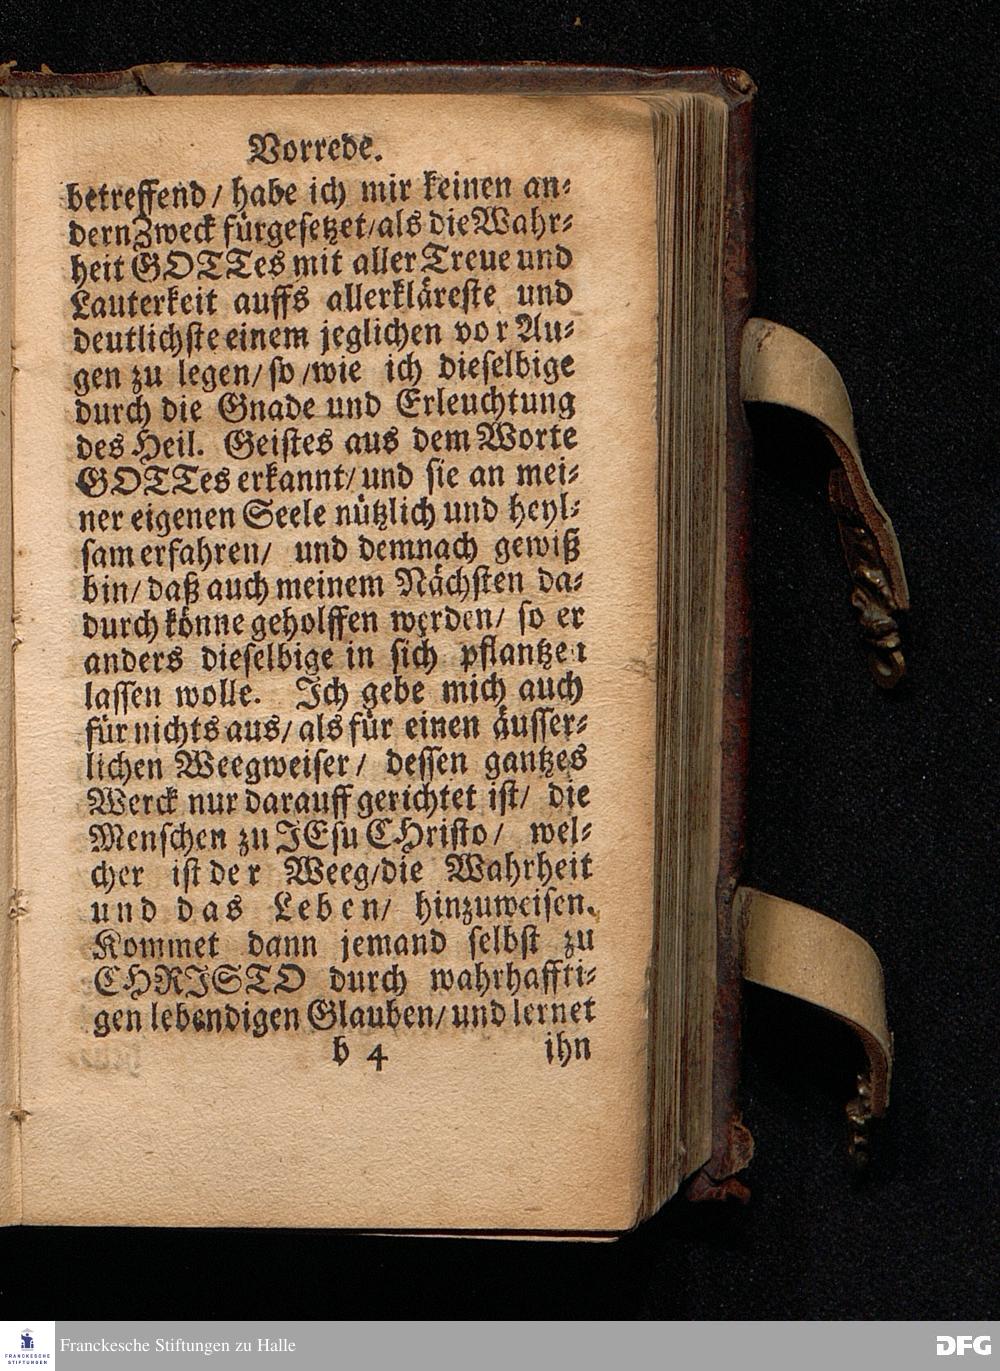 Vorrede.
betreffend/ habe ich mir keinen an-
dern Zweck fürgesetzet/als die Wahr-
heit GOTTes mit aller Treue und
Lauterkeit auffs allerkläreste und
deutlichste einem jeglichen vor Au-
gen zu legen/ so /wie ich dieselbige
durch die Gnade und Erleuchtung
des Heil. Geistes aus dem Worte
GOTTes erkannt/ und sie an mei-
ner eigenen Seele nützlich und heyl-
sam erfahren/ und demnach gewiß
bin/ daß auch meinem Nächsten da-
durch könne geholffen werden/ so er
anders dieselbige in sich pflantzen
lassen wolle. Ich gebe mich auch
für nichts aus/ als für einen äusser-
lichen Weegweiser/ dessen gantzes
Werck nur darauff gerichtet ist/ die
Menschen zu JEsu CHristo/ wel-
cher ist der Weeg/die Wahrheit
und das Leben/ hinzuweisen.
Kommet dann jemand selbst zu
CHRISTO durch wahrhaffti-
gen lebendigen Glauben/ und lernet
b 4 ihn
FRANCKESCHE
STIFTUNGEN
Franckesche Stiftungen zu Halle
DFG